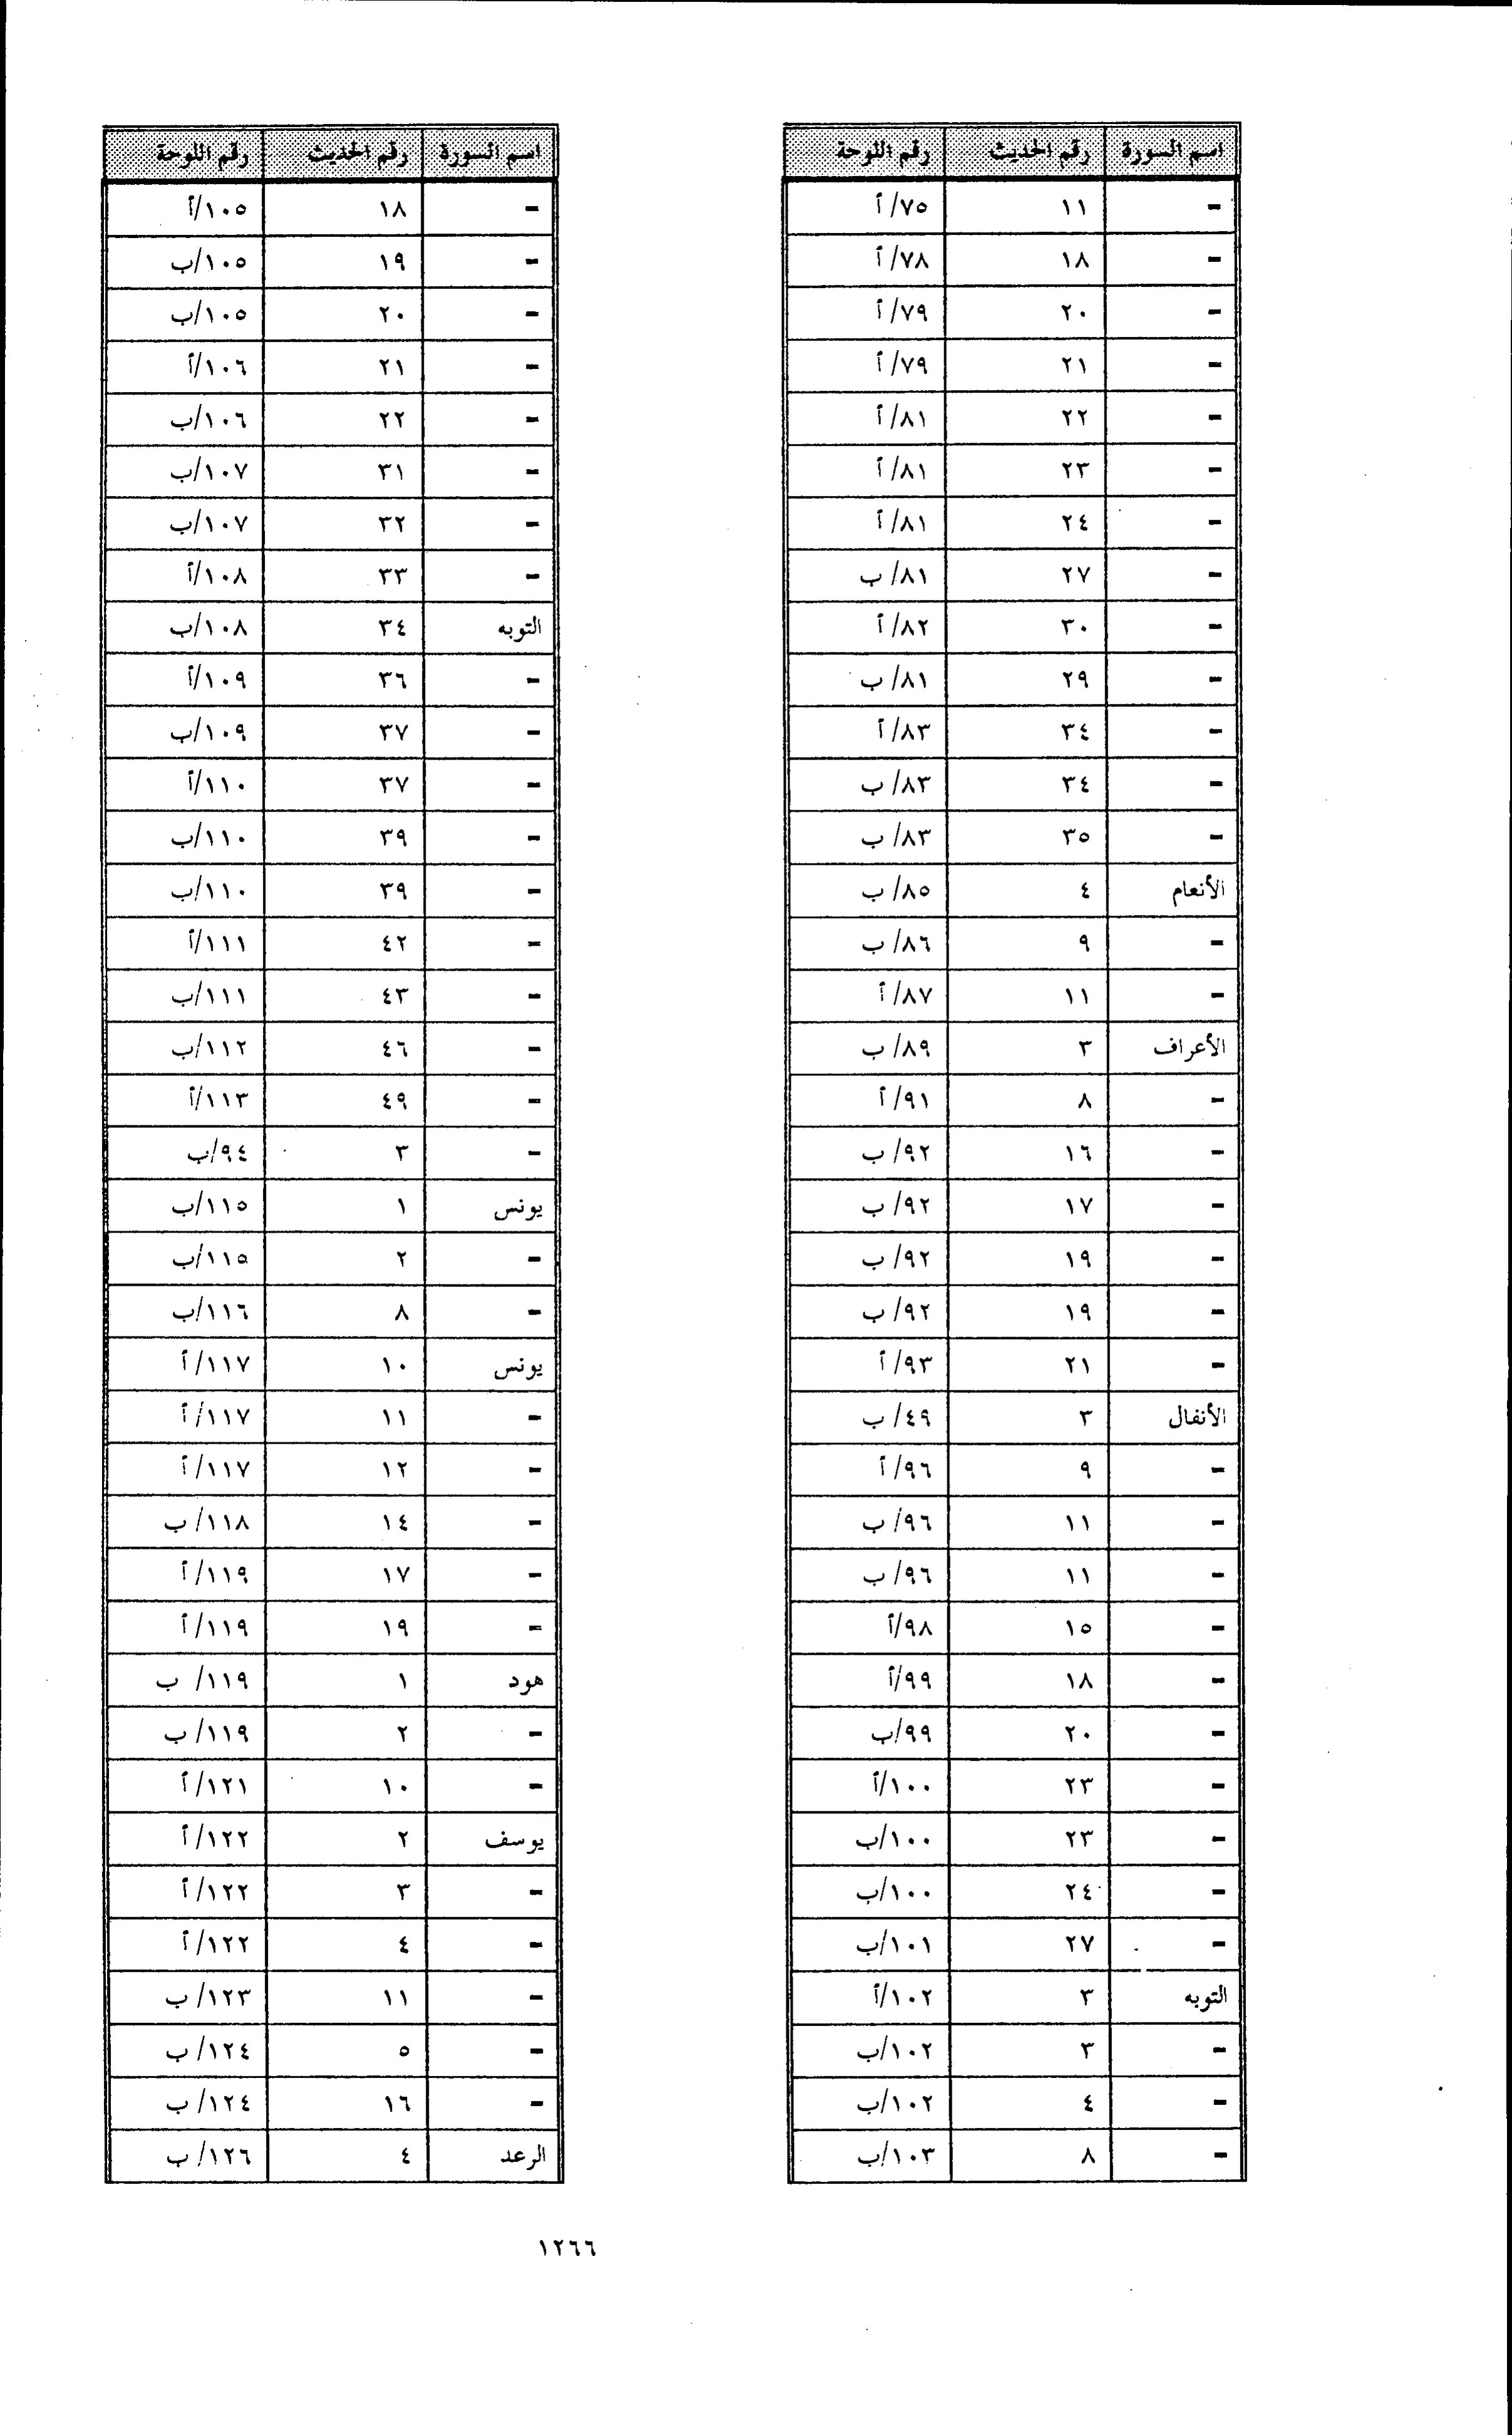 اسم السورة رقم الحديث رقم اللوحة
- ١١ ٧٥/ أ
- ١٨ ٧٨/ أ
- ٢٠ ٧٩/ أ
- ٢١ ٧٩/ أ
- ٢٢ ٨١/ أ
- ٢٣ ٨١/ أ
- ٢٤ ٨١/ أ
- ٢٧ ٨١/ ب
- ٣٠ ٨٢/ أ
- ٢٩ ٨١/ ب
- ٣٤ ٨٣/ أ
- ٣٤ ٨٣/ ب
- ٣٥ ٨٣/ ب
الأنعام ٤ ٨٥/ ب
- ٩ ٨٦/ ب
- ١١ ٨٧/ أ
الأعراف ٣ ٨٩/ ب
- ٨ ٩١/ أ
- ١٦ ٩٢/ ب
- ١٧ ٩٢/ ب
- ١٩ ٩٢/ ب
- ١٩ ٩٢/ ب
- ٢١ ٩٣/ أ
الأنفال ٣ ٤٩/ ب
- ٩ ٩٦/ أ
- ١١ ٩٦/ ب
- ١١ ٩٦/ ب
- ١٥ ٩٨/أ
- ١٨ ٩٩/أ
- ٢٠ ٩٩/ب
- ٢٣ ١٠٠/أ
- ٢٣ ١٠٠/ب
- ٢٤ ١٠٠/ب
- ٢٧ ١٠١/ب
التوبه ٣ ١٠٢/أ
- ٣ ١٠٢/ب
- ٤ ١٠٢/ب
- ٨ ١٠٣/ب
اسم السورة رقم الحديث رقم اللوحة
- ١٨ ١٠٥/أ
- ١٩ ١٠٥/ب
- ٢٠ ١٠٥/ب
- ٢١ ١٠٦/أ
- ٢٢ ١٠٦/ب
- ٣١ ١٠٧/ب
- ٣٢ ١٠٧/ب
- ٣٣ ١٠٨/أ
التوبه ٣٤ ١٠٨/ب
- ٣٦ ١٠٩/أ
- ٣٧ ١٠٩/ب
- ٣٧ ١١٠/أ
- ٣٩ ١١٠/ب
- ٣٩ ١١٠/ب
- ٤٢ ١١١/أ
- ٤٣ ١١١/ب
- ٤٦ ١١٢/ب
- ٤٩ ١١٣/أ
- ٣ ٩٤/ب
يونس ١ ١١٥/ب
- ٢ ١١٥/ب
- ٨ ١١٦/ب
يونس ١٠ ١١٧/ أ
- ١١ ١١٧/ أ
- ١٢ ١١٧/ أ
- ١٤ ١١٨/ ب
- ١٧ ١١٩/ أ
- ١٩ ١١٩/ أ
هود ١ ١١٩/ ب
- ٢ ١١٩/ ب
- ١٠ ١٢١/ أ
يوسف ٢ ١٢٢/ أ
- ٣ ١٢٢/ أ
- ٤ ١٢٢/ أ
- ١١ ١٢٣/ ب
- ٥ ١٢٤/ ب
- ١٦ ١٢٤/ ب
الرعد ٤ ١٢٦/ ب
١٢٦٦